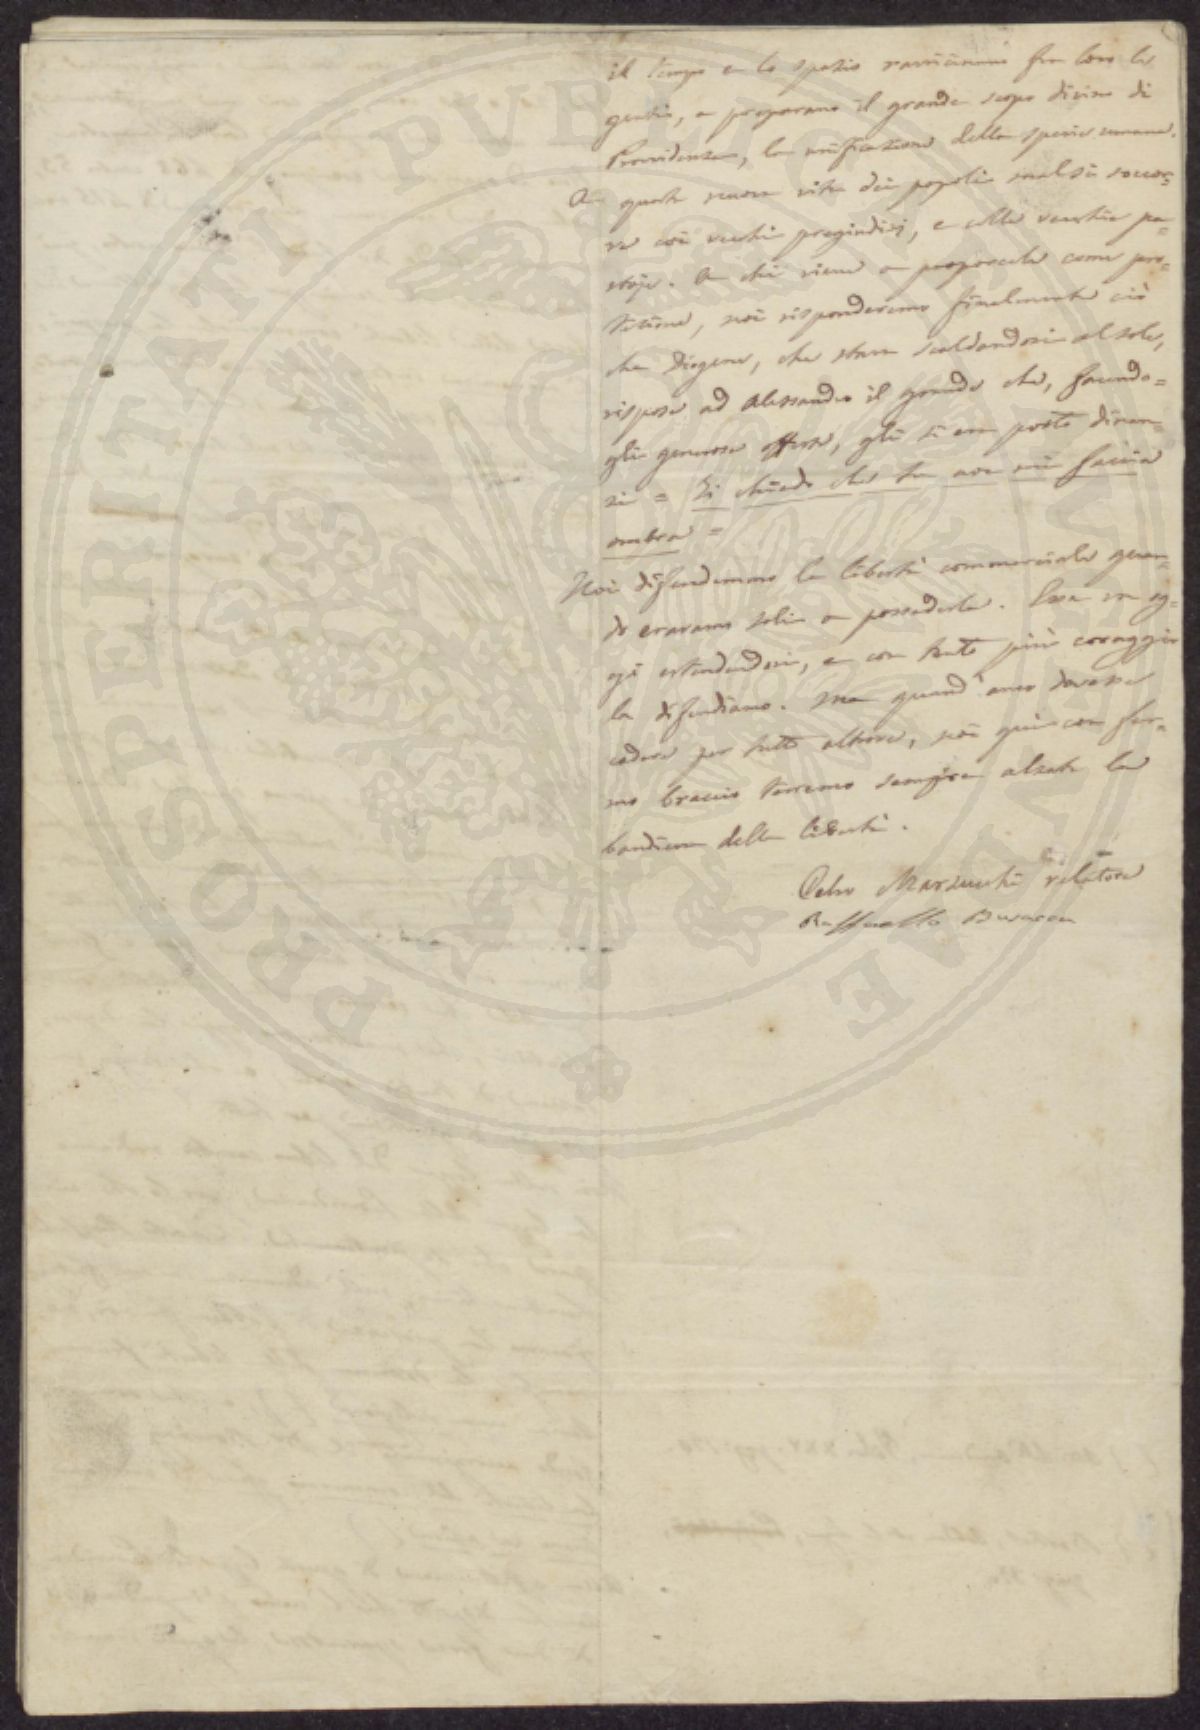 il tempo e lo spazio ravvicinano fra loro le
genti, e preparano il grande scopo divino di
Provvidenza, la unificazione della specie umana.
A questa nuova vita dei popoli mal si soccor=
re coi vecchi pregiudizj, e colle vecchie pa=
stoje. A chi viene a proporcele come pro=
tezione, noi risponderemo finalmente ciò
che Diogene, che stava scaldandosi al sole,
rispose ad Alessandro il grande che, facendo=
gli generose offerte, gli si era posto dinan=
zi = Ti chiedo che tu non mi faccia
ombra =
Noi difendemmo la libertà commerciale quan=
do eravamo soli a possederla. Essa va og=
gi estendendosi, e con tanto più coraggio
la difendiamo. Ma quand'anco dovesse
cadere per tutto altrove, noi qui con fer=
mo braccio terremo sempre alzata la
bandiera della libertà.
Celso Marzucchi relatore
Raffaello Busacca
PROSPERITATI PUBLICAE AUGENDAE